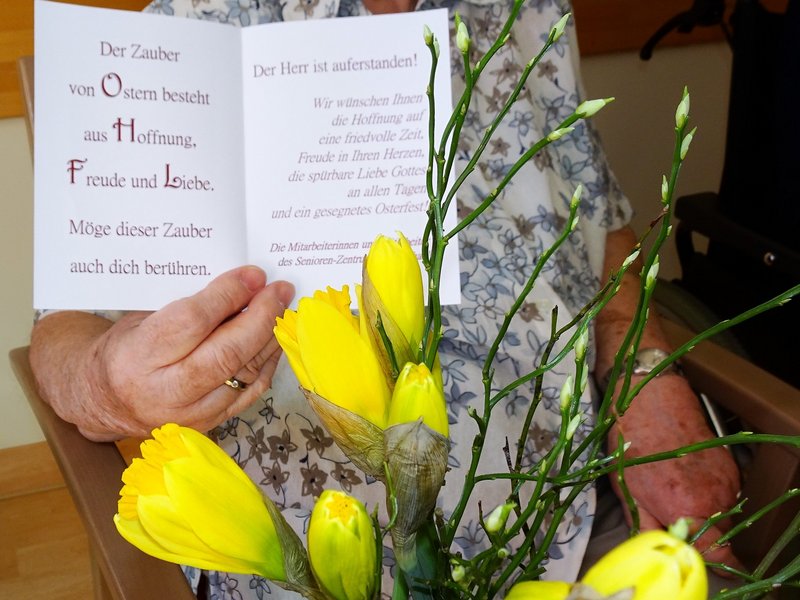 Der Zauber
von Ostern besteht
aus Hoffnung,
Freude und Liebe.
Möge dieser Zauber
auch dich berühren.
Der Herr ist auferstanden!
Wir wünschen Ihnen
die Hoffnung auf
eine friedvolle Zeit,
Freude in Ihren Herzen,
die spürbare Liebe Gottes
an allen Tagen
und ein gesegnetes Osterfest!
Die Mitarbeiterinnen
des Senioren-Zentru